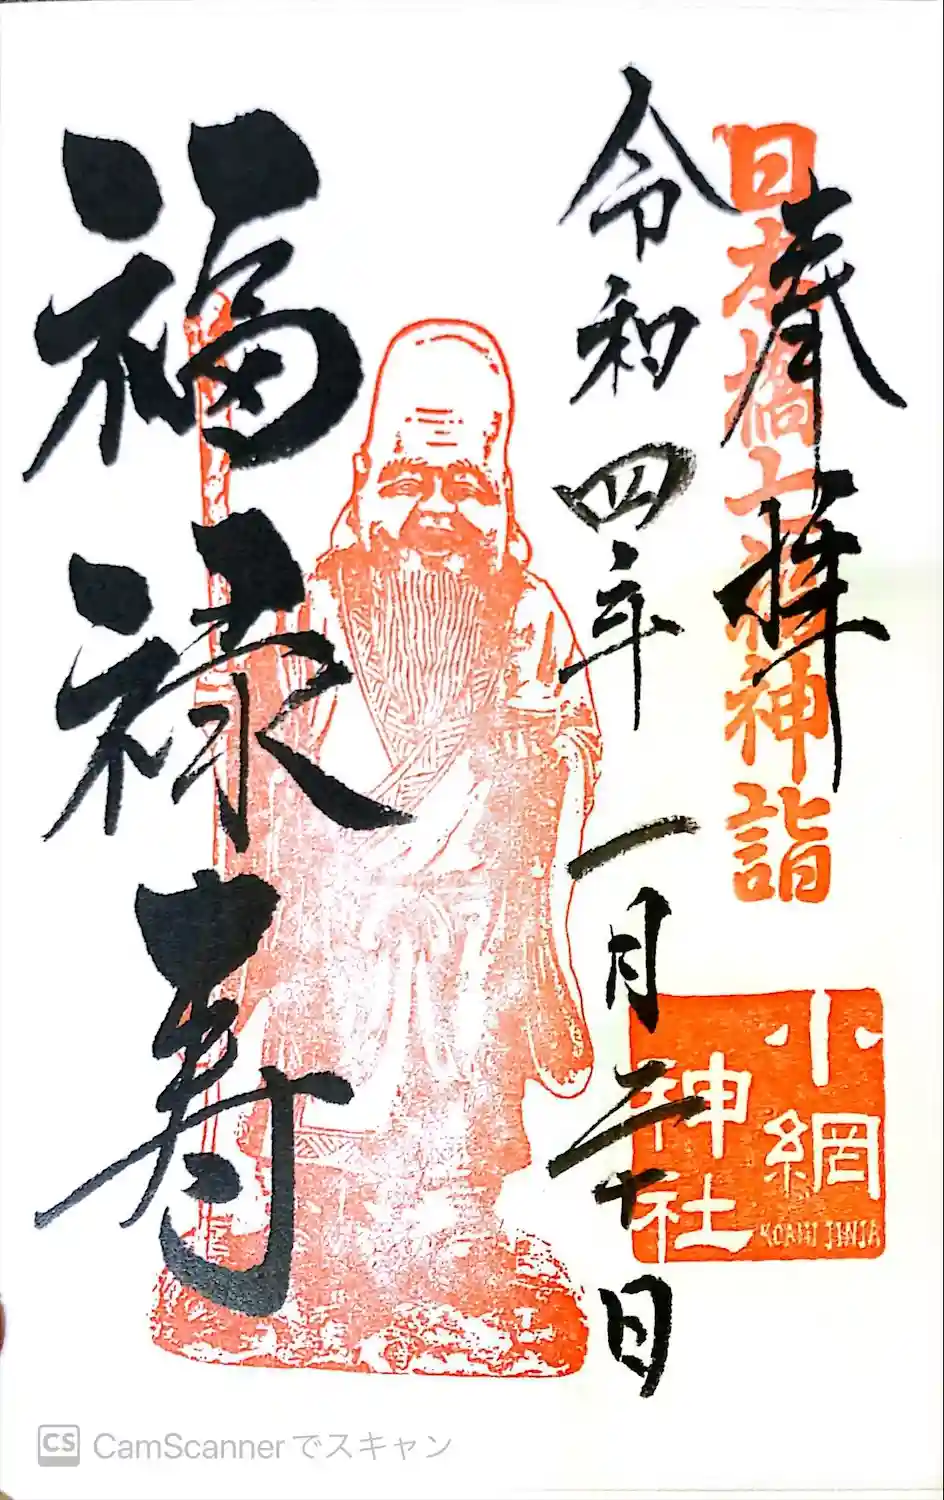 奉拝
日本橋七福神詣
令和四年一月二十日
小網
神社
KOAMI JINJA
福禄寿
CS CamScannerでスキャン